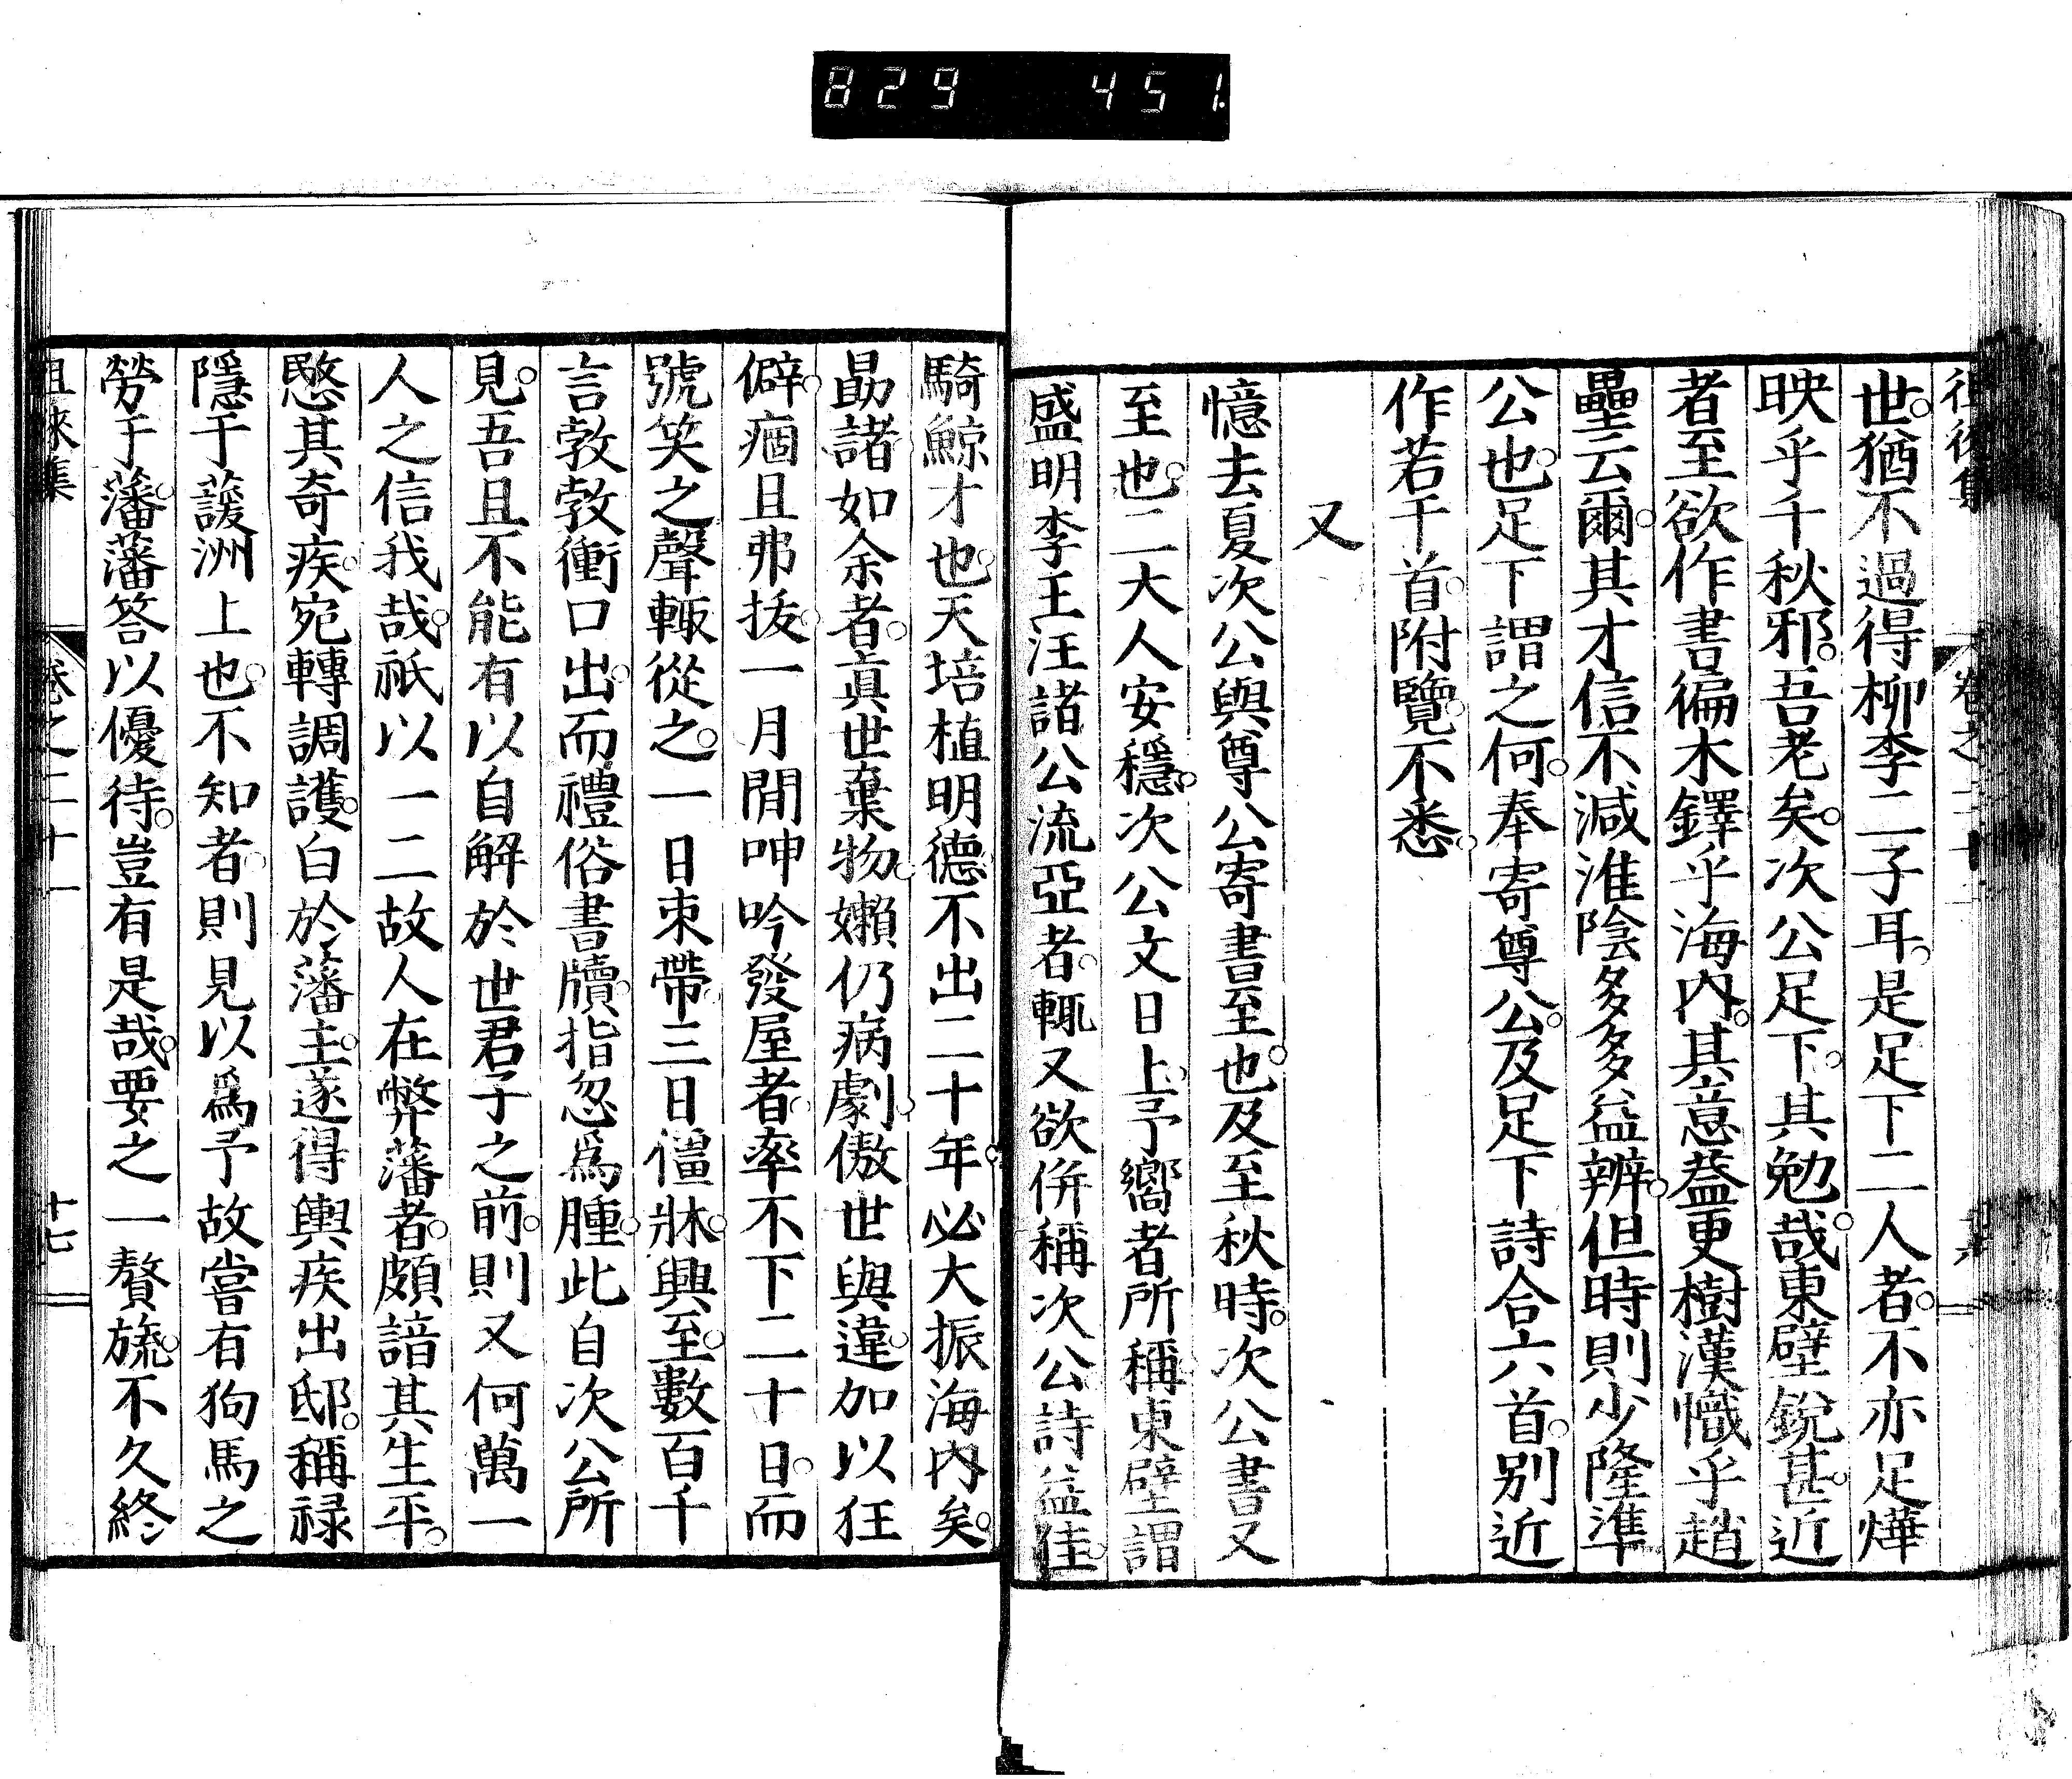 829 451
世。猶不過得柳李二子耳。是足下二人者。不亦足燁
映乎千秋邪。吾老矣。次公足下。其勉哉。東壁銳甚。近
者至欲作書徧木鐸乎海內。其意蓋更樹漢幟乎趙
壘云爾。其才信不減淮陰多多益辨。但時則少隆準
公也。足下謂之何。奉寄尊公。及足下詩合六首。別近
作若干首。附覽。不悉。
又
憶去夏次公與尊公寄書至也。及至秋時。次公書又
至也。二大人安穩。次公文日上。予嚮者所稱。東壁謂
盛明李王汪諸公流亞者。輒又欲併稱次公詩益佳。
騎鯨才也。天培植明德。不出二十年。必大振海內矣。
勗諸如余者。眞世棄物。嬾仍病劇。傲世與違。加以狂
僻。痼且弗拔。一月間呻吟發屋者。率不下二十日。而
號笑之聲輙從之。一日束帶。三日僵牀。興至。數百千
言敦敦衝口出。而禮俗書牘。指忽爲腫。此自次公所
見。吾且不能有以自解於世君子之前。則又何萬一
人之信我哉。祇以一二故人在弊藩者。頗諳其生平。
愍其奇疾。宛轉調護。白於藩主。遂得輿疾出邸。稱祿
隱于蘐洲上也。不知者。則見以爲予故嘗有狗馬之
勞于藩。藩答以優待。豈有是哉。要之一贅旒。不久終
徂徠集 卷之二十一 十七